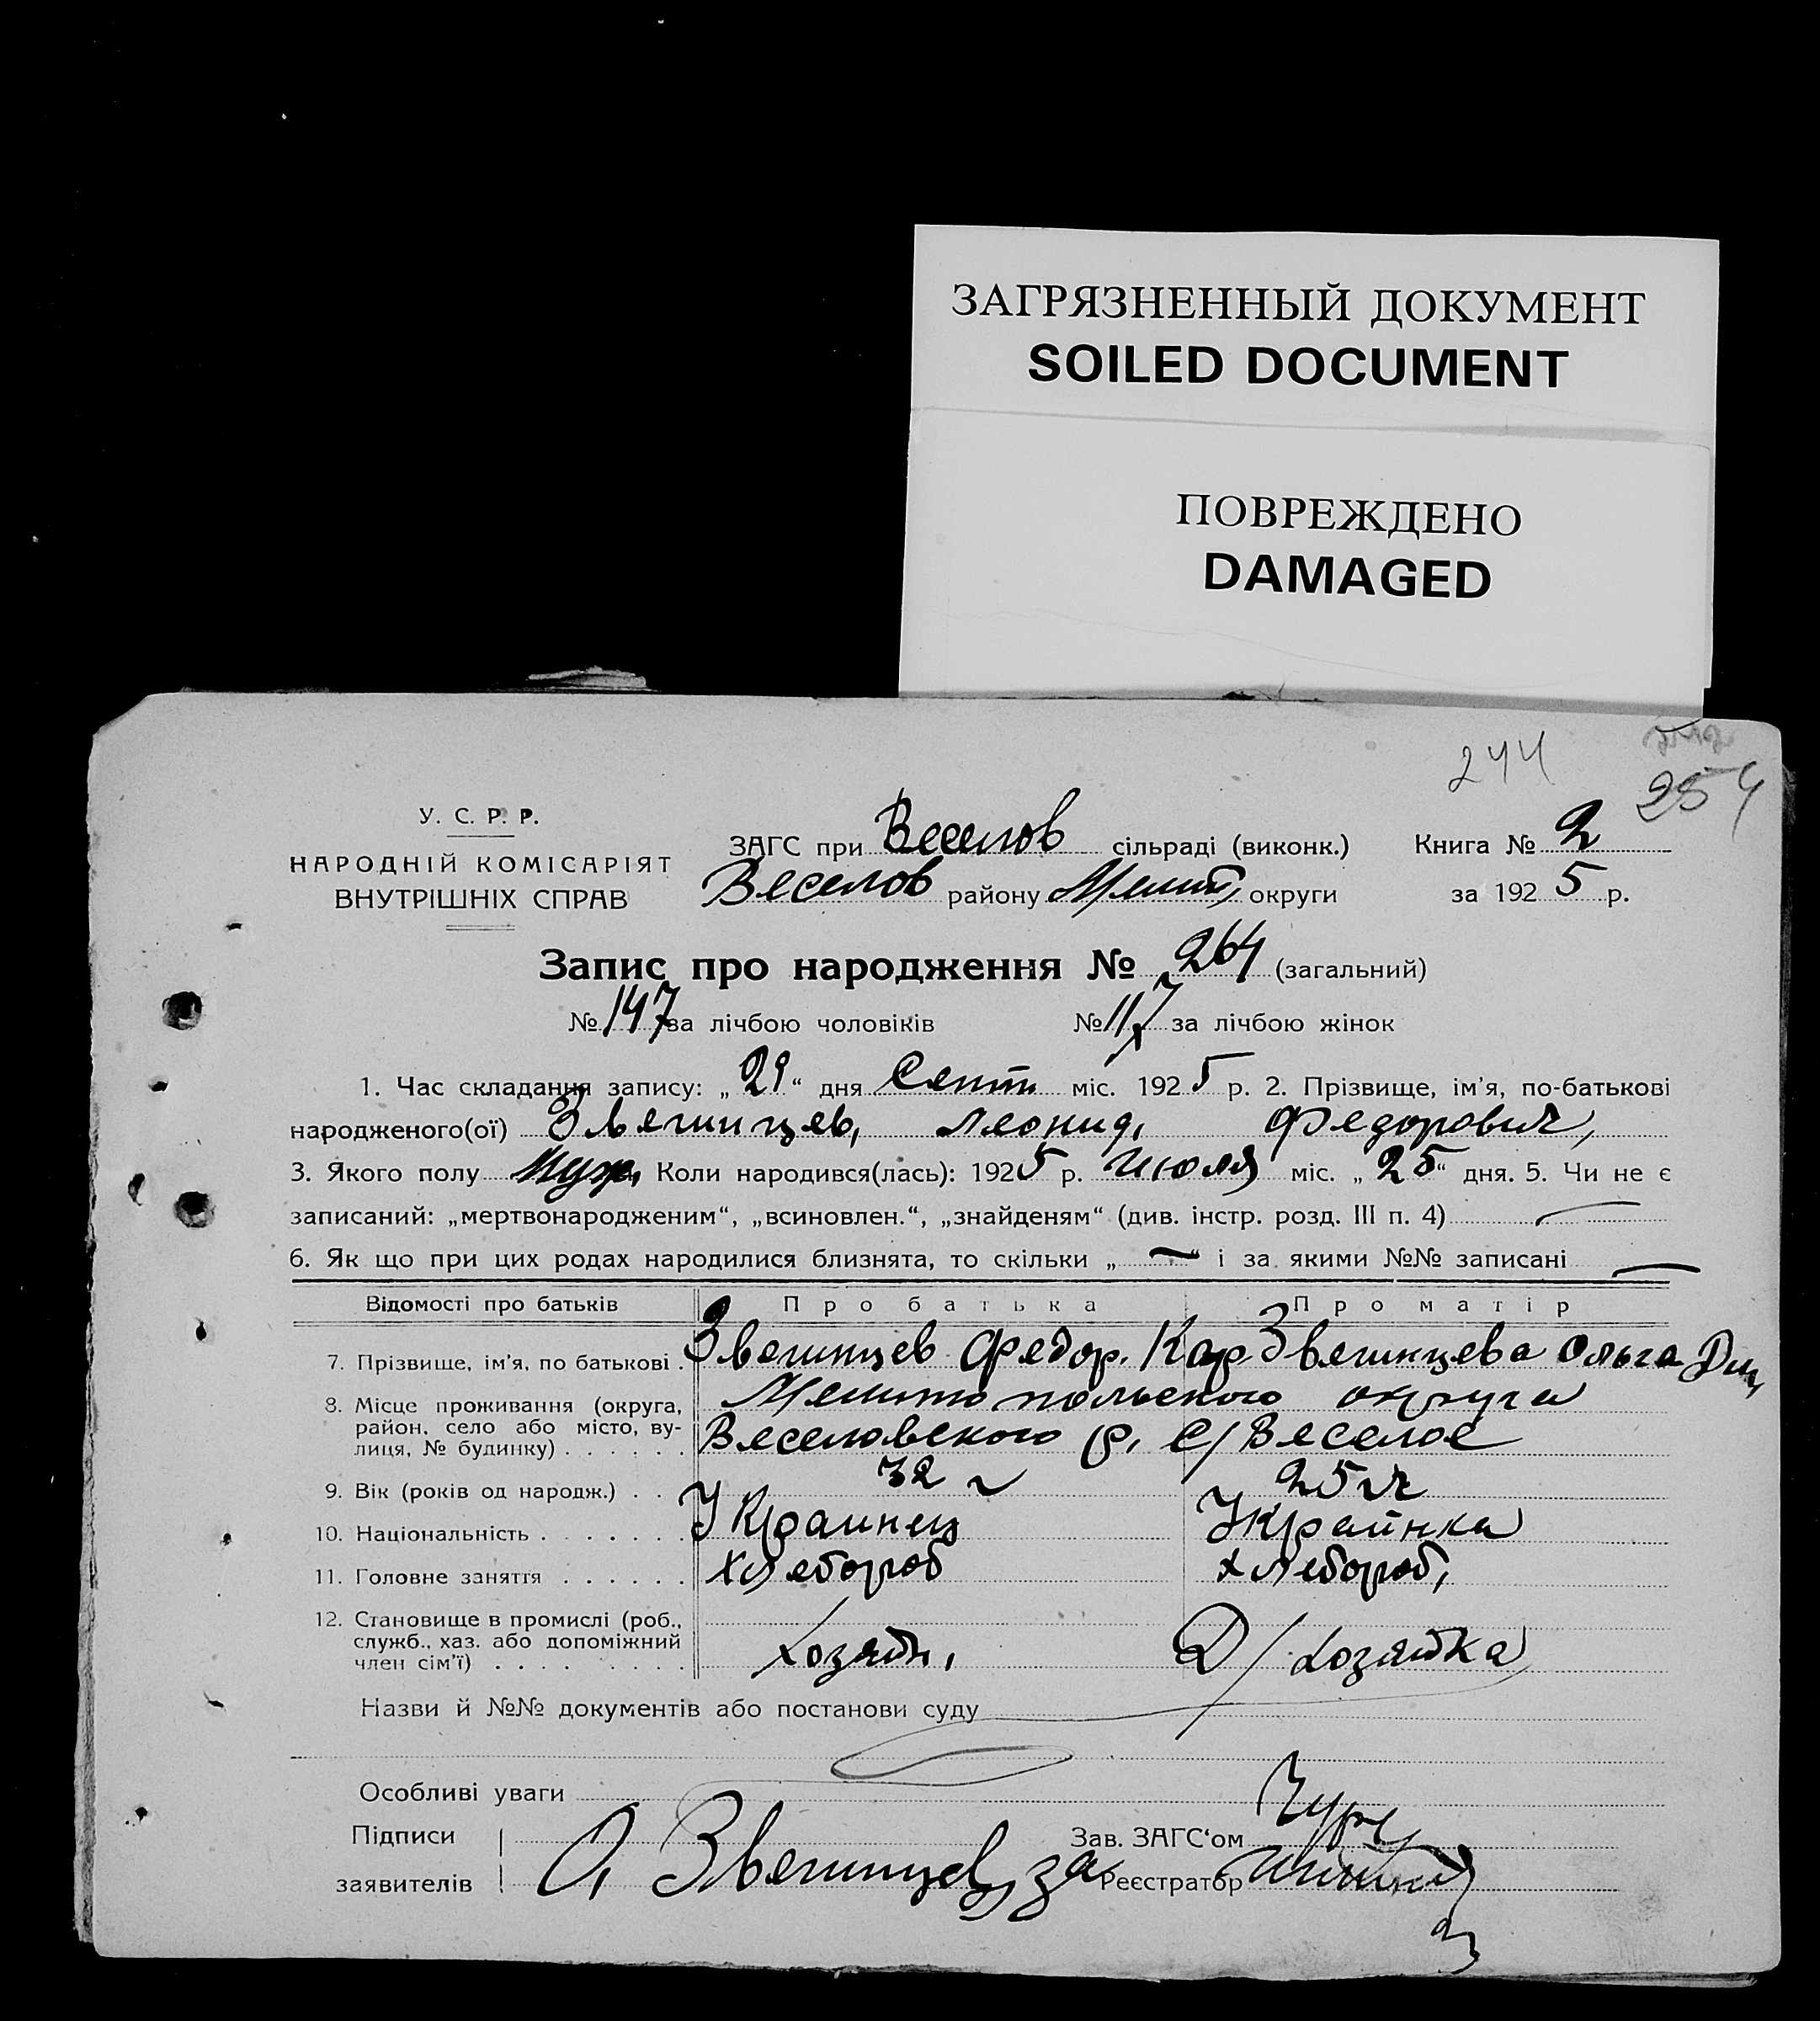 ЗАГРЯЗНЕННЫЙ ДОКУМЕНТ
SOILED DOCUMENT
ПОВРЕЖДЕНО
DAMAGED
244
254
У. С. Р. Р.
НАРОДНІЙ КОМІСАРІЯТ
ВНУТРІШНІХ СПРАВ
ЗАГС при Веселов сільраді (виконк.) Книга № 2
Веселов району Мелит, округи за 1925 р.
Запис про народження № 264 (загальний)
№ 147 за лічбою чоловіків № 117 за лічбою жінок
1. Час складання запису: „29“ дня Сент міс. 1925 р. 2. Прізвище, ім'я, по-батькові
народженого(ої) Звегинцев, Леонид, Федорович,
3. Якого полу Муж, Коли народився(лась): 1925 р. Июля міс. „25“ дня. 5. Чи не є
записаний: „мертвонародженим“, „всиновлен.“, „знайденям“ (див. інстр. розд. III п. 4) —
6. Як що при цих родах народилися близнята, то скільки „—“ і за якими №№ записані —
Відомості про батьків Про батька Про матір
7. Прізвище, ім'я, по батькові . Звегинцев Федор. Кар Звегинцева Ольга Дм,
8. Місце проживання (округа, район, село або місто, ву- лиця, № будинку) . . . . . . Мелитопольского округа
Веселовского р. с/Веселое
9. Вік (років од народж.) . . 32 г 25 г
10. Національність . . . . . . . Украинец Украинка
11. Головне заняття . . . . . . Хлебороб Хлебороб,
12. Становище в промислі (роб., служб., хаз. або допоміжний член сім'ї) . . . . . . . . Хозяин, Д/Хозяйка
Назви й №№ документів або постанови суду
Особливі уваги
Підписи Зав. ЗАГС‘ом
заявителів О, Звегинцев за Реєстратор